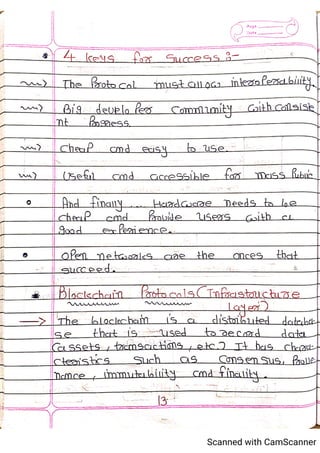 Page
Date
4 keys for success :-
The Protocol must allow interoperability.
Big developer community with consiste
nt progress.
Cheap and easy to use.
Useful and accessible for mass public
And finally ... Hardware needs to be
cheap and provide users with a
good experience.
open networks are the ones that
succeed.
Blockchain Protocols (Infrastructure
layer)
The blockchain is a distributed databa-
se that is used to record data
(assets, transactions, etc.) It has chara-
cteristics such as consensus, Prove
nance, immutability and finality.
13
Scanned with CamScanner